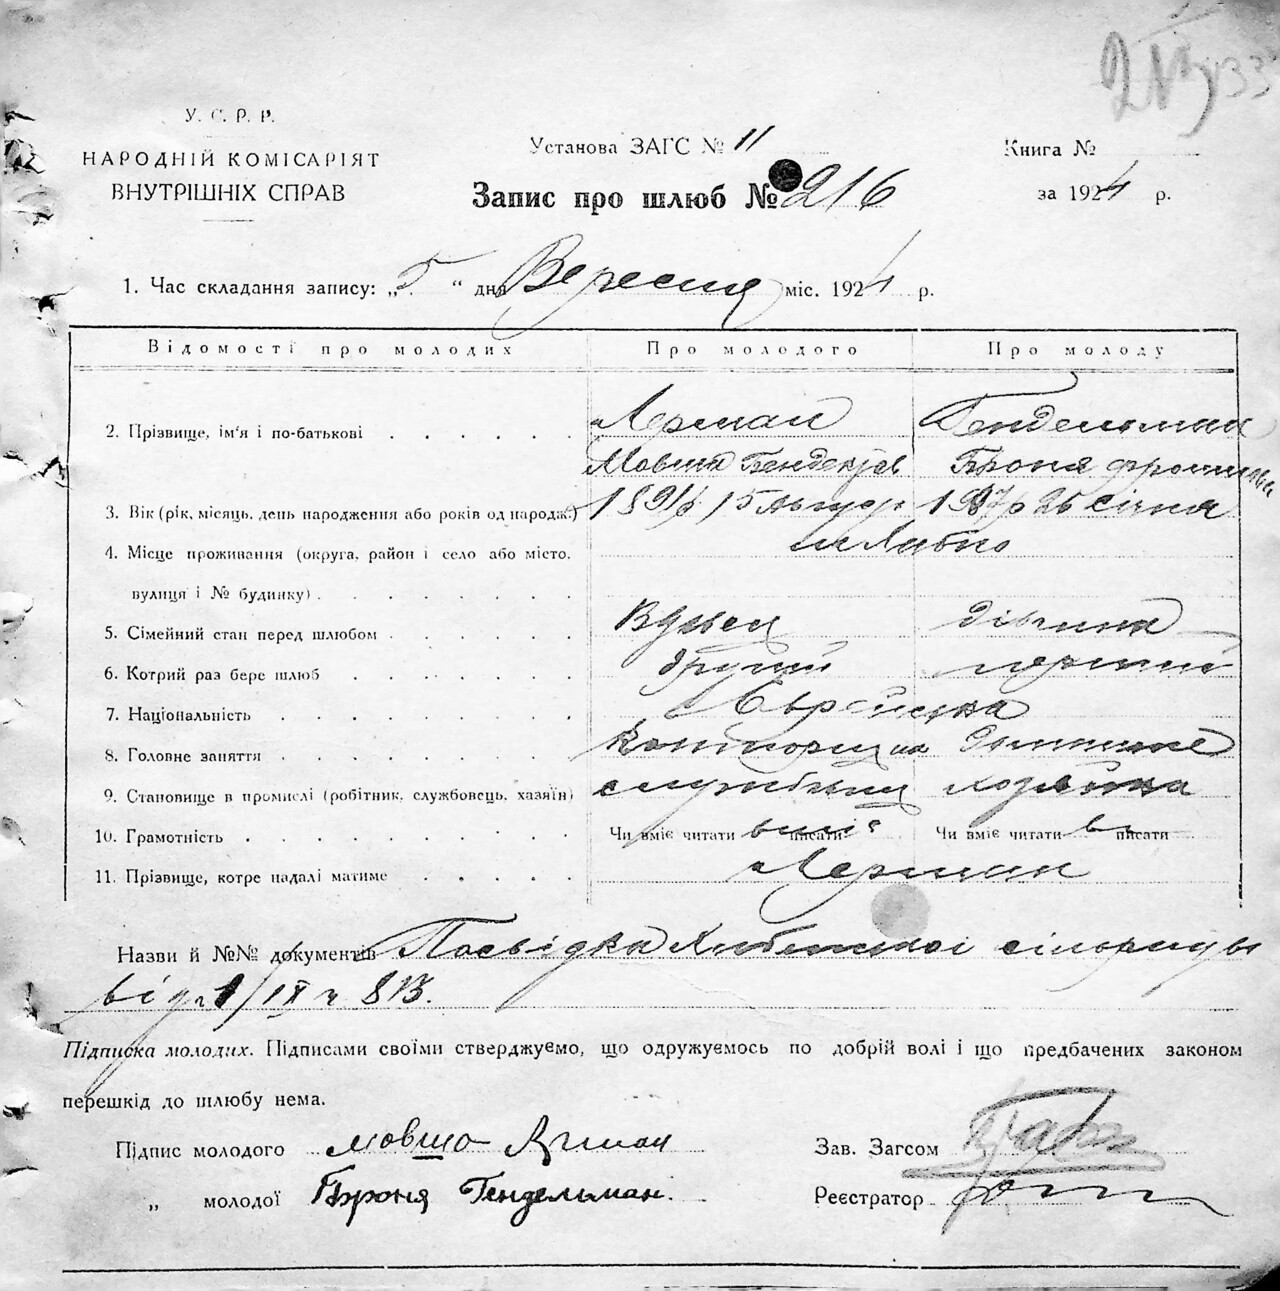 У. С. Р. Р.
НАРОДНІЙ КОМІСАРІЯТ
ВНУТРІШНІХ СПРАВ
Установа ЗАГС № 11
Запис про шлюб № 216
Книга №
за 1924 р.
1. Час складання запису: „ “ дня Вересня міс. 1924 р.
Відомості про молодих Про молодого Про молоду
2. Прізвище, ім'я і по-батькові Лерман Гендельман
Мовша Броня
3. Вік (рік, місяць, день народження або років од народж.) 15 26 січня
4. Місце проживання (округа, район і село або місто,
вулиця і № будинку)
5. Сімейний стан перед шлюбом Вдовец дівчина
6. Котрий раз бере шлюб другий перший
7. Національність Єврейська
8. Головне заняття домашнє
9. Становище в промислі (робітник, службовець, хазяїн)
10. Грамотність Чи вміє читати писати Чи вміє читати писати
11. Прізвище, котре надалі матиме Лерман
Назви й №№ документів Посвідка сільради
від 1/IX ч 813.
Підписка молодих. Підписами своїми стверджуємо, що одружуємось по добрій волі і що предбачених законом
перешкід до шлюбу нема.
Підпис молодого мовша Лерман Зав. Загсом
„ молодої Броня Гендельман. Реєстратор